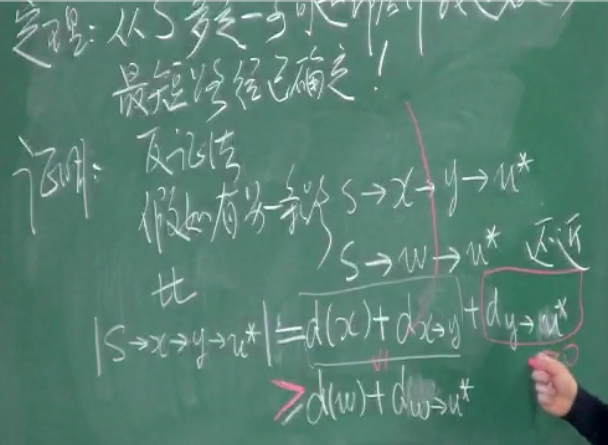 定理: 从S多走一步
最短路径已确定!
证明: 反证法
假如有另一条路 s→x→y→u*
比 s→w→u* 还近
|s→x→y→u*| = d(x)+d_{x→y}+d_{y→u*}
≥0
≥ d(w)+d_{w→u*}